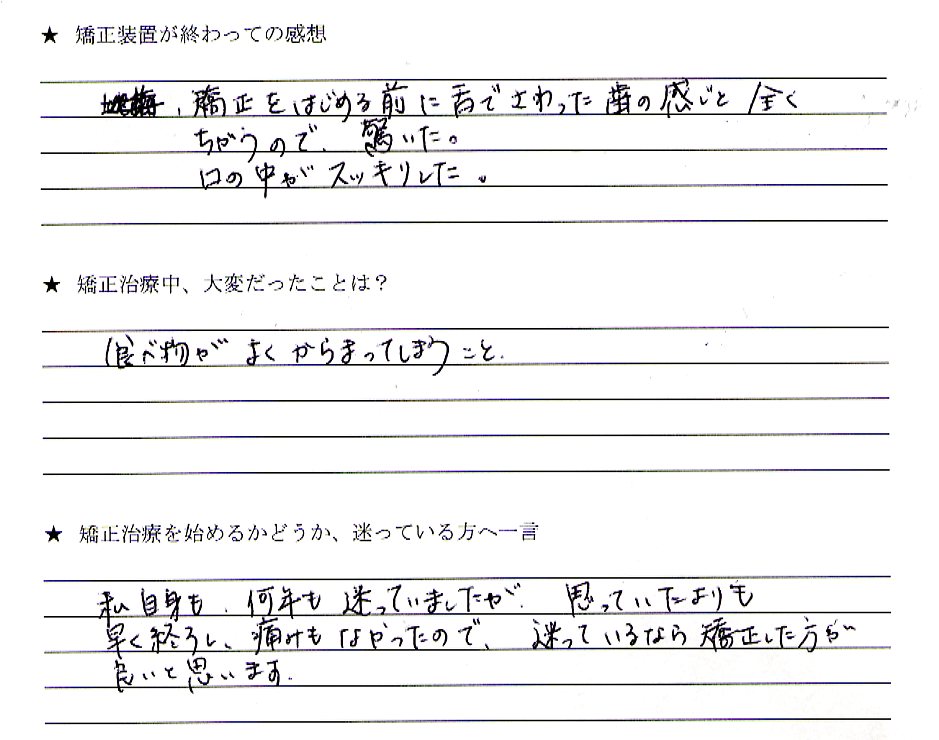 ★ 矯正装置が終わっての感想
矯正をはじめる前に舌でさわった歯の感じと全く
ちがうので、驚いた。
口の中がスッキリした。
★ 矯正治療中、大変だったことは？
食べ物がよくからまってしまうこと.
★ 矯正治療を始めるかどうか、迷っている方へ一言
私自身も、何年も迷っていましたが、思っていたよりも
早く終ろし、痛みもなかったので、迷っているなら矯正した方が
良いと思います.